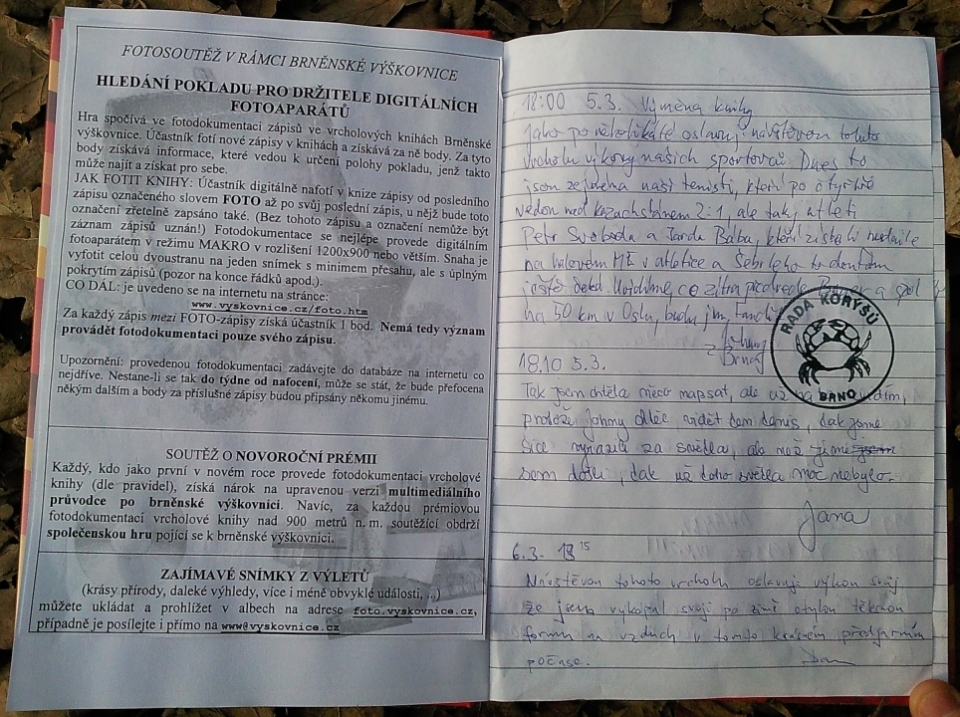 FOTOSOUTĚŽ V RÁMCI BRNĚNSKÉ VÝŠKOVNICE
HLEDÁNÍ POKLADU PRO DRŽITELE DIGITÁLNÍCH
FOTOAPARÁTŮ
Hra spočívá ve fotodokumentaci zápisů ve vrcholových knihách Brněnské
výškovnice. Účastník fotí nové zápisy v knihách a získává za ně body. Za tyto
body získává informace, které vedou k určení polohy pokladu, jenž takto
může najít a získat pro sebe.
JAK FOTIT KNIHY: Účastník digitálně nafotí v knize zápisy od posledního
zápisu označeného slovem FOTO až po svůj poslední zápis, u nějž bude toto
označení zřetelně zapsáno také. (Bez tohoto zápisu a označení nemůže být
záznam zápisů uznán!) Fotodokumentace se nejlépe provede digitálním
fotoaparátem v režimu MAKRO v rozlišení 1200x900 nebo větším. Snaha je
vyfotit celou dvoustranu na jeden snímek s minimem přesahu, ale s úplným
pokrytím zápisů (pozor na konce řádků apod.).
CO DÁL: je uvedeno se na internetu na stránce:
www.vyskovnice.cz/foto.htm
Za každý zápis mezi FOTO-zápisy získá účastník 1 bod. Nemá tedy význam
provádět fotodokumentaci pouze svého zápisu.
Upozornění: provedenou fotodokumentaci zadávejte do databáze na internetu co
nejdříve. Nestane-li se tak do týdne od nafocení, může se stát, že bude přefocena
někým dalším a body za příslušné zápisy budou připsány někomu jinému.
SOUTĚŽ O NOVOROČNÍ PRÉMII
Každý, kdo jako první v novém roce provede fotodokumentaci vrcholové
knihy (dle pravidel), získá nárok na upravenou verzi multimediálního
průvodce po brněnské výškovnici. Navíc, za každou prémiovou
fotodokumentaci vrcholové knihy nad 900 metrů n. m. soutěžící obdrží
společenskou hru pojící se k brněnské výškovnici.
ZAJÍMAVÉ SNÍMKY Z VÝLETŮ
(krásy přírody, daleké výhledy, více i méně obvyklé události, ...)
můžete ukládat a prohlížet v albech na adrese foto.vyskovnice.cz,
případně je posílejte i přímo na www@vyskovnice.cz
18:00 5.3. Výměna knihy
Jako po několikáté oslavuji návštěvou tohoto
vrcholu výkony našich sportovců. Dnes to
jsou zejména naši tenisti, kteří po čtyřhře
vedou nad Kazachstánem 2:1, ale taky atleti
Petr Svoboda a Jarda Bába, kteří získali medaile
na halovém ME v atletice a Šebrleho to
ještě čeká. co zítra předvede Bauer a spol
na 50 km v Oslu, budu jim fandit
z Brna
RADA KORÝŠŮ
BRNO
18,10 5.3.
Tak jsem chtěla něco napsat, ale už
protože Johny chtěl vidět ten tenis, tak jsme
sice vyrazili za světla, ale než jsme
sem došli, tak už toho světla moc nebylo.
Jana
6.3. 13 15
Návštěvou tohoto vrcholu oslavuji výkon svůj
že jsem vykopal svoji po zimě otylou tělesnou
formu na vzduch v tomto krásném předjarním
počase.